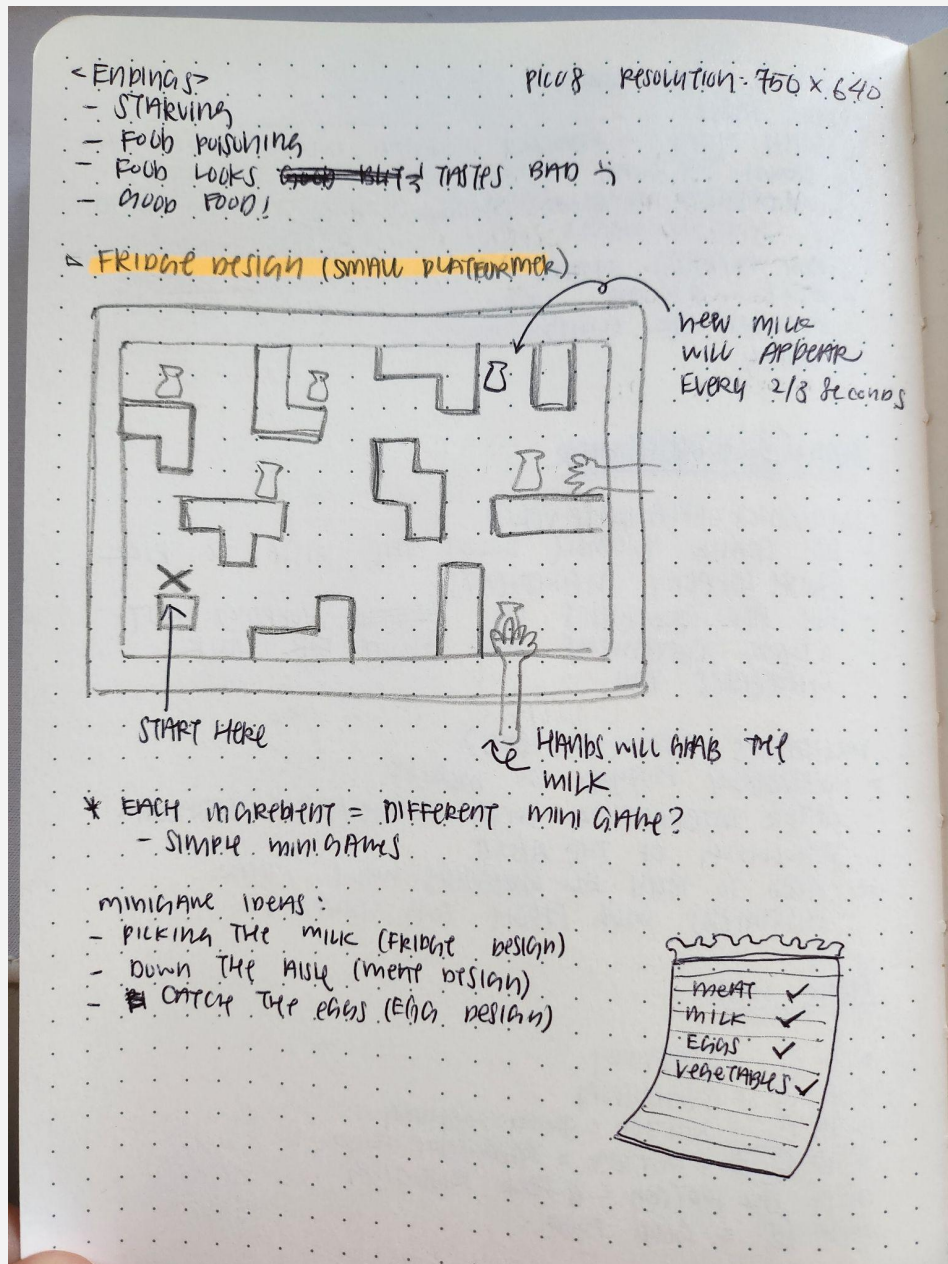 <ENDINGS>
PICO8 RESOLUTION: 750 × 640
- STARVING
- FOOD POISONING
- FOOD LOOKS TASTES BAD :(
- GOOD FOOD!
▷ FRIDGE DESIGN (SMALL PLATFORMER)
NEW MILK
WILL APPEAR
EVERY 2/3 SECONDS
START HERE
HANDS WILL GRAB THE
MILK
* EACH INGREDIENT = DIFFERENT MINI GAME?
- SIMPLE MINIGAMES
MINIGAME IDEAS:
- PICKING THE MILK (FRIDGE DESIGN)
- DOWN THE AISLE (MEAT DESIGN)
- CATCH THE EGGS (EGG DESIGN)
MEAT ✓
MILK ✓
EGGS ✓
VEGETABLES ✓